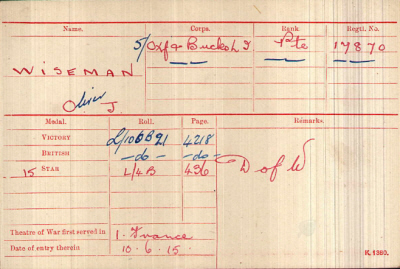 Name. Corps. Rank Regtl. No.
5/Oxf & Bucks L I Pte 17870
WISEMAN
Oliver J.
Medal. Roll. Page. Remarks.
VICTORY L/106B21 4218 D of W
BRITISH -do- -do-
15 STAR L/4B 436
Theatre of War first served in 1. France
Date of entry therein 10.6.15
K. 1380.